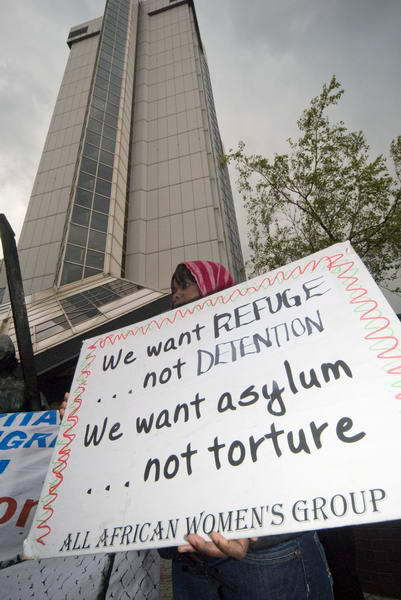 We want REFUGE
... not DETENTION
We want asylum
... not torture
ALL AFRICAN WOMEN'S GROUP